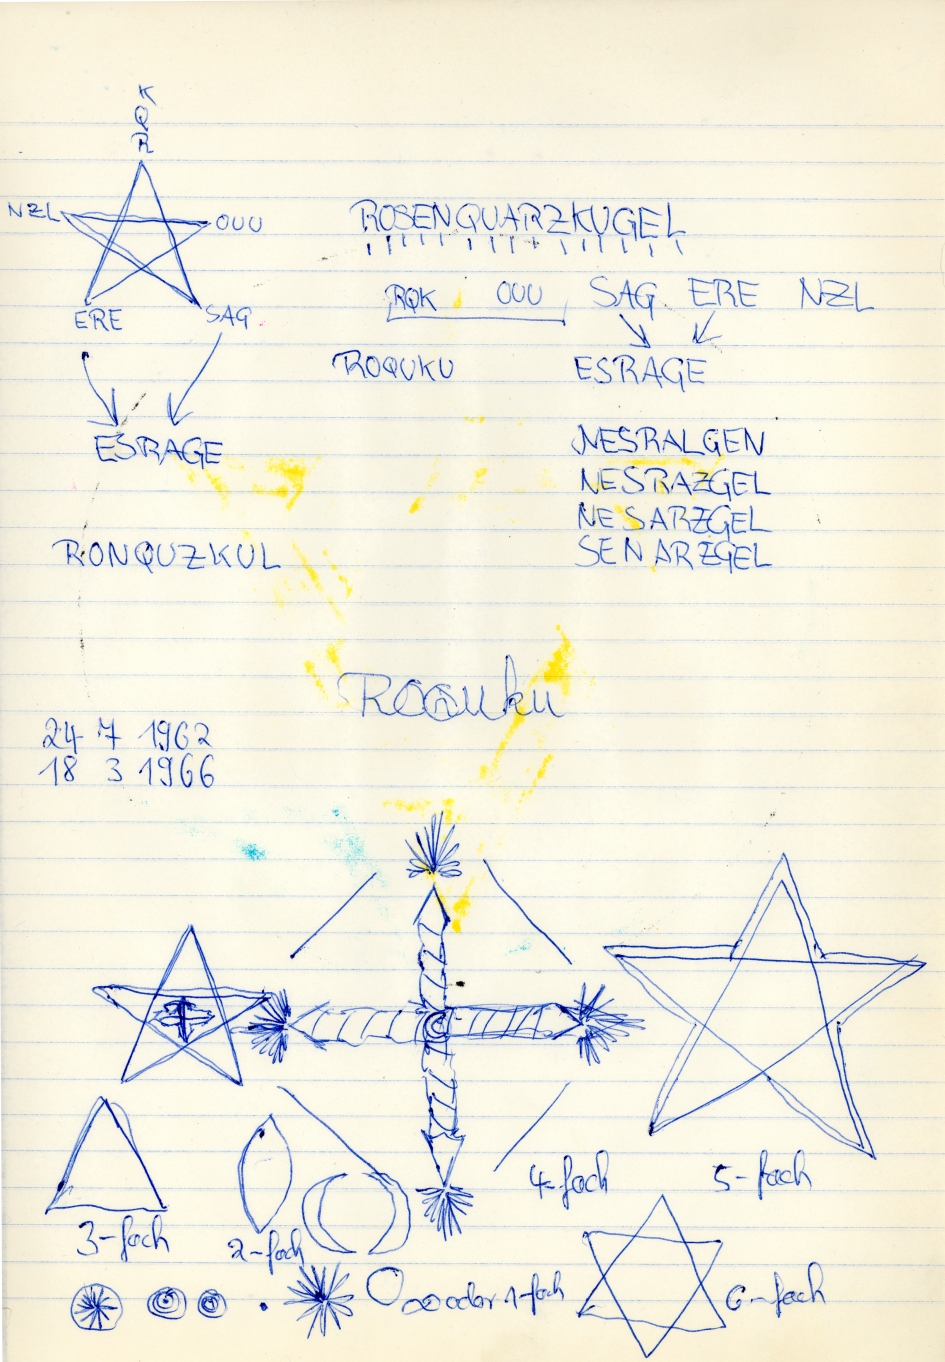 K
Q
R
NZL
OUU
ERE
SAG
ESRAGE
RONQUZKUL
ROSENQUARZKUGEL
RQK OUU SAG ERE NZL
ROQUKU ESRAGE
NESRALGEN
NESRAZGEL
NESARZGEL
SENARZGEL
Roquku
24 7 1962
18 3 1966
4-fach
5-fach
3-fach
2-fach
oder 1-fach
6-fach